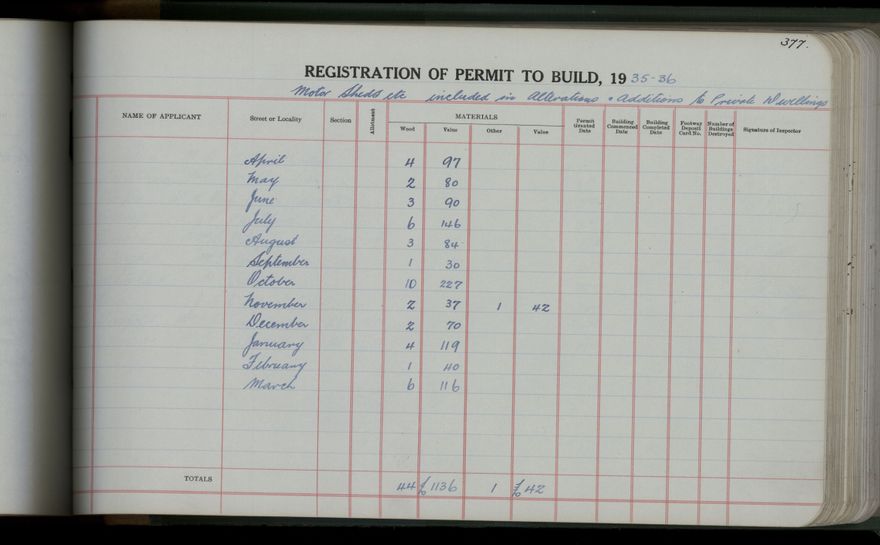 377.
REGISTRATION OF PERMIT TO BUILD, 1935-36
Motor Sheds etc included in Alterations & Additions to Private Dwellings
NAME OF APPLICANT Street or Locality Section Allotment MATERIALS Permit Granted Date Building Commenced Date Building Completed Date Footway Deposit Card No. Number of Buildings Destroyed Signature of Inspector
Wood Value Other Value
April 4 97
May 2 80
June 3 90
July 6 146
August 3 84
September 1 30
October 10 227
November 2 37 1 42
December 2 70
January 4 119
February 1 40
March 6 116
TOTALS 44 £1136 1 £42